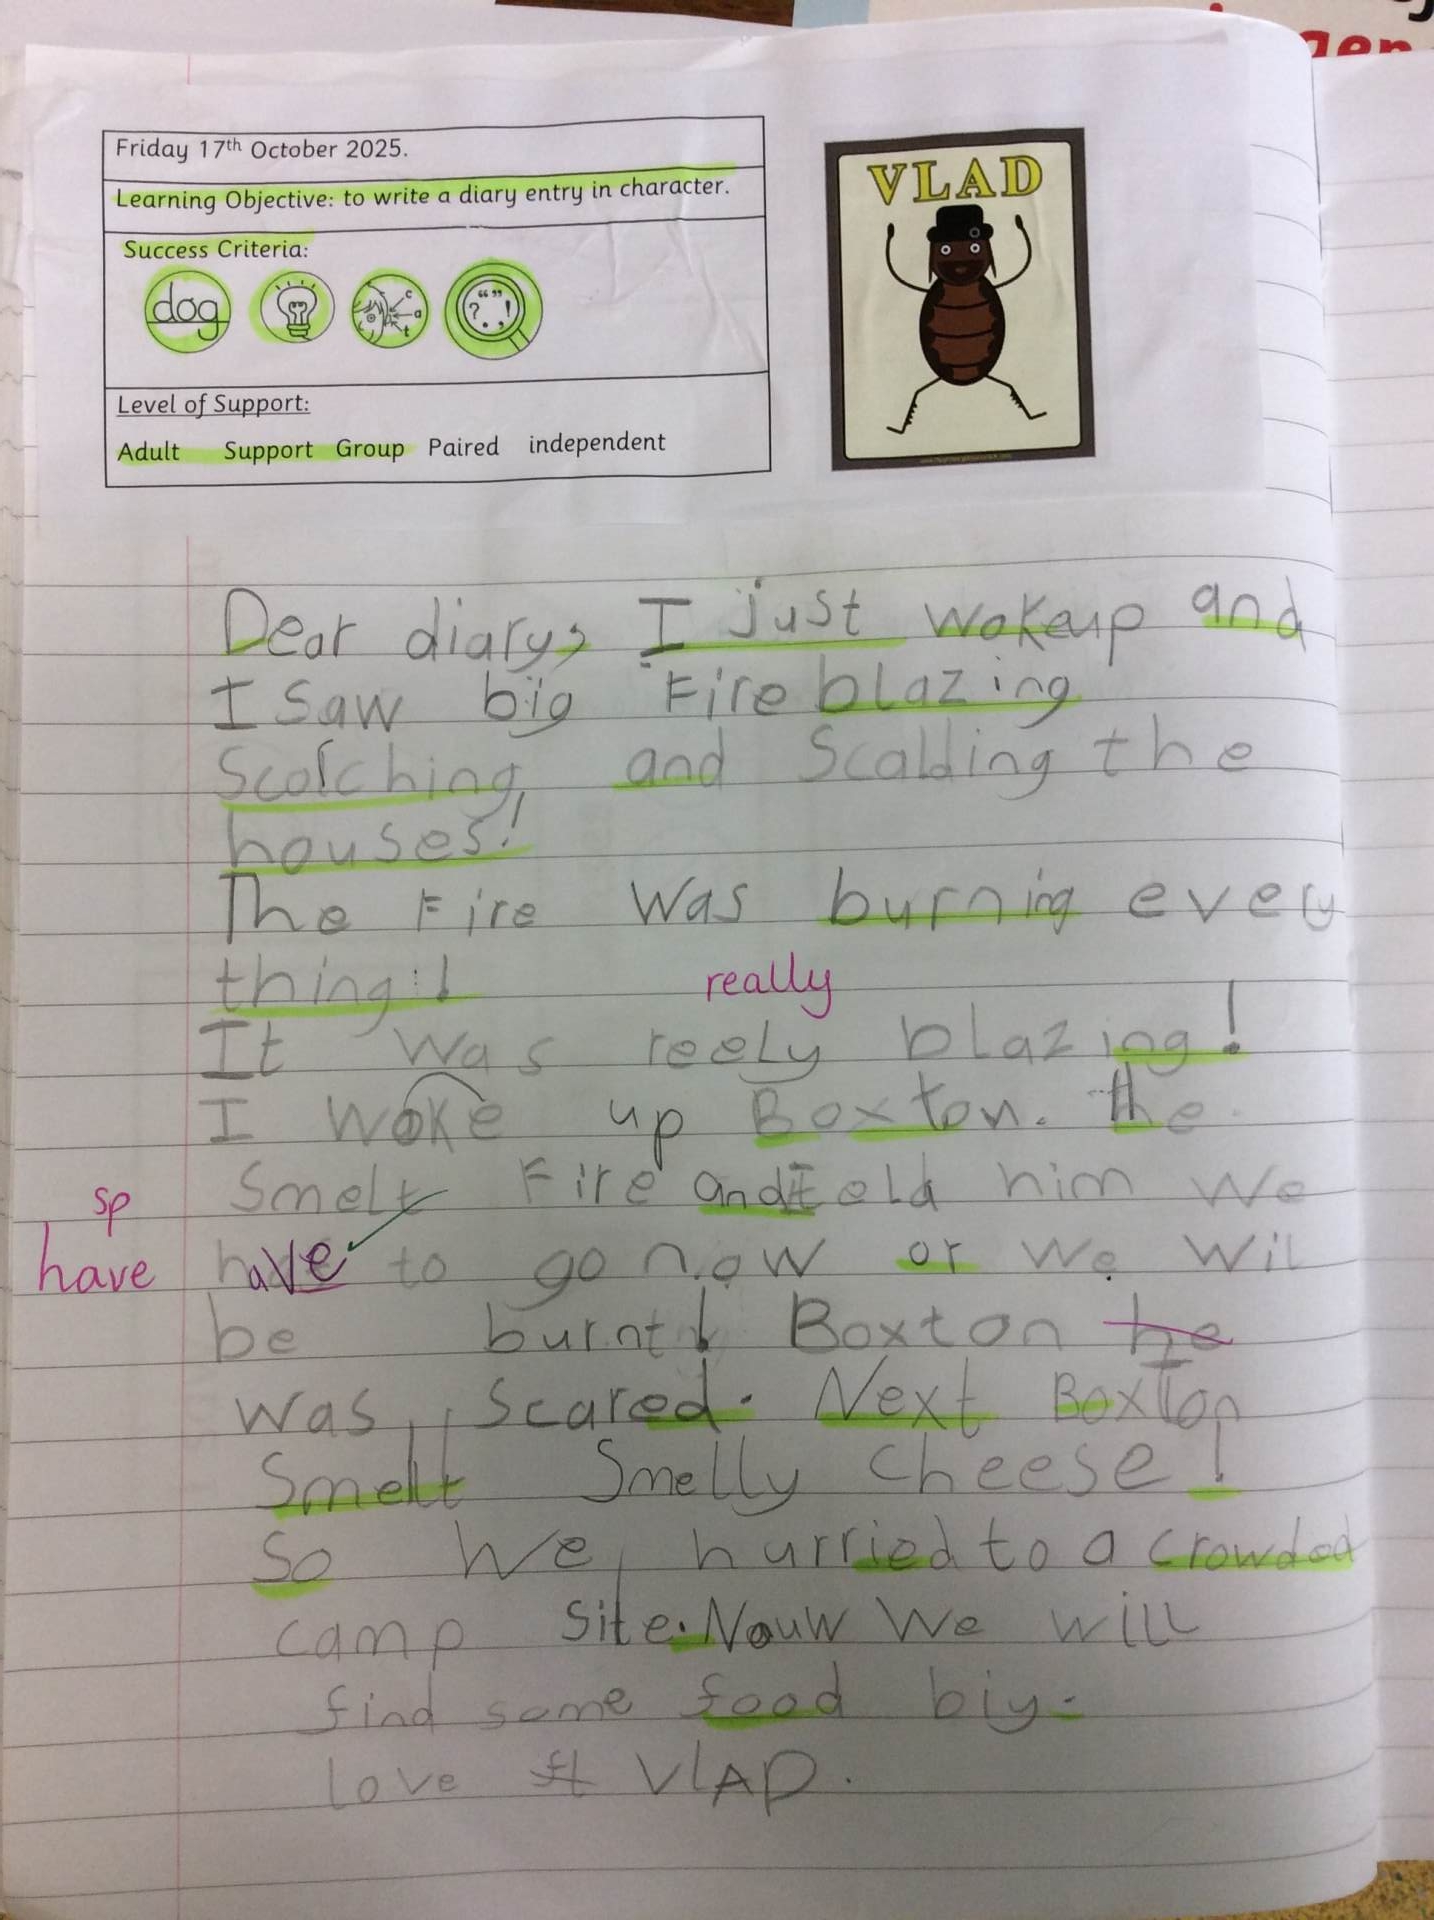 Friday 17th October 2025.
Learning Objective: to write a diary entry in character.
Success Criteria:
dog
c
a
t
“ ” ? . , !
Level of Support:
Adult Support Group Paired independent
VLAD
Dear diary, I just wokeup and
I Saw big Fire blazing
Scorching, and Scalding the
houses!
The Fire was burning every
thing!
really
It was reely blazing!
I woke up Boxton. the
Smelt Fire and told him we
sp
have have to go now or we wil
be burnt! Boxton he
was scared. Next Boxton
Smelt Smelly cheese!
So We hurried to a crowded
camp Site. Nouw We will
find some food biy.
love VlAD.